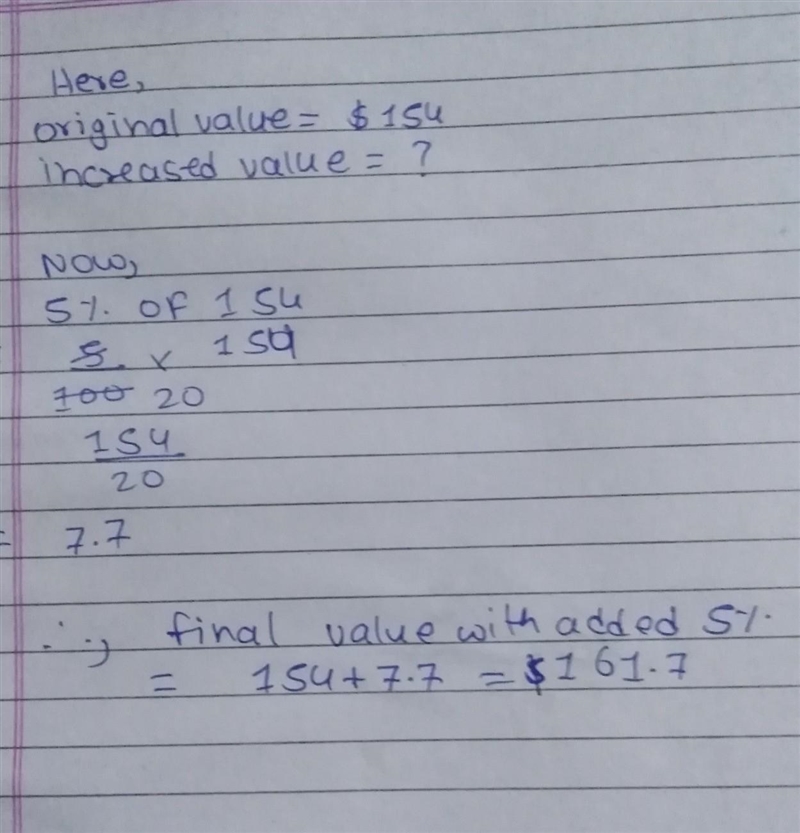 Here,
original value = $ 154
increased value = ?
Now,
5% of 154
5 x 154
100 20
154
20
= 7.7
∴, final value with added 5%.
= 154 + 7.7 = $161.7